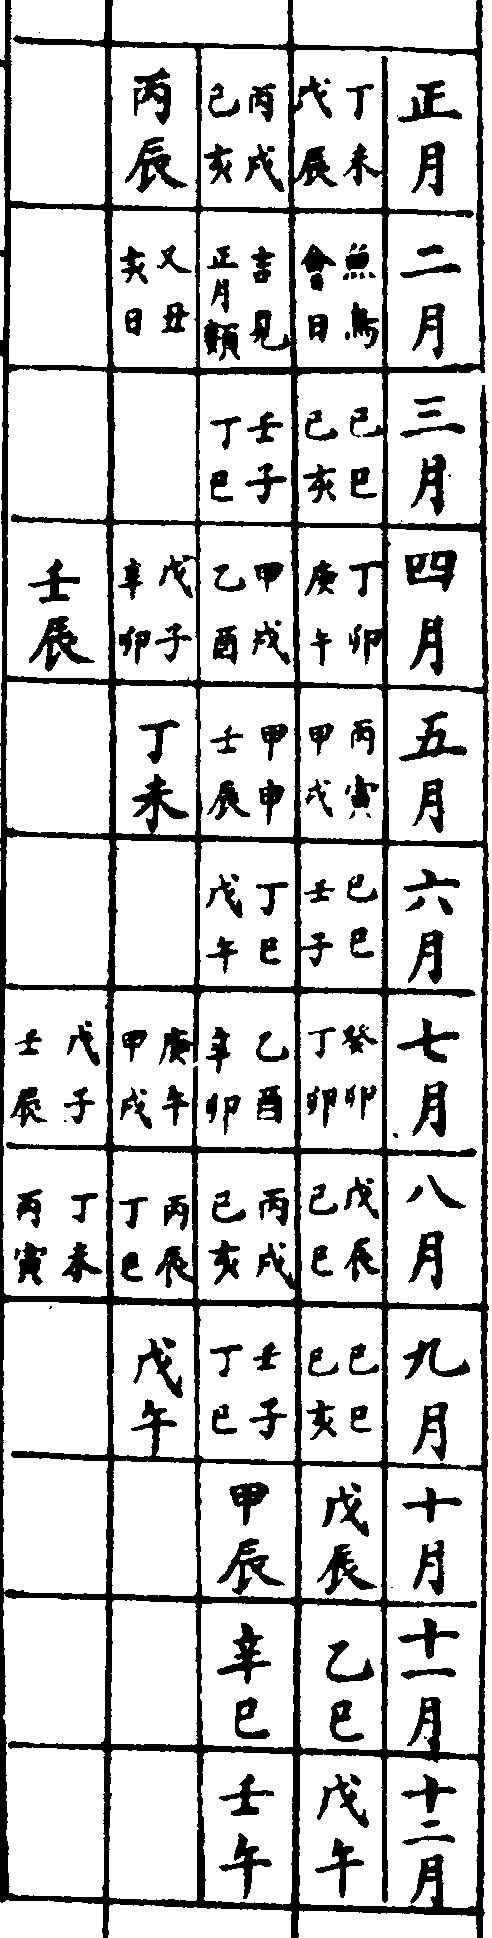 正月 丁未 戊辰 丙戌 己亥 丙辰
二月 魚鳥會日 吉見正月類 又丑亥日
三月 己巳 己亥 壬子 丁巳
四月 丁卯 庚午 甲戌 乙酉 戊子 辛卯 壬辰
五月 丙寅 甲戌 甲申 壬辰 丁未
六月 己巳 壬子 丁巳 戊午
七月 癸卯 丁卯 乙酉 辛卯 庚午 甲戌 戊子 壬辰
八月 戊辰 己巳 丙戌 己亥 丙辰 丁巳 丁未 丙寅
九月 己巳 己亥 壬子 丁巳 戊午
十月 戊辰 甲辰
十一月 乙巳 辛巳
十二月 戊午 壬午